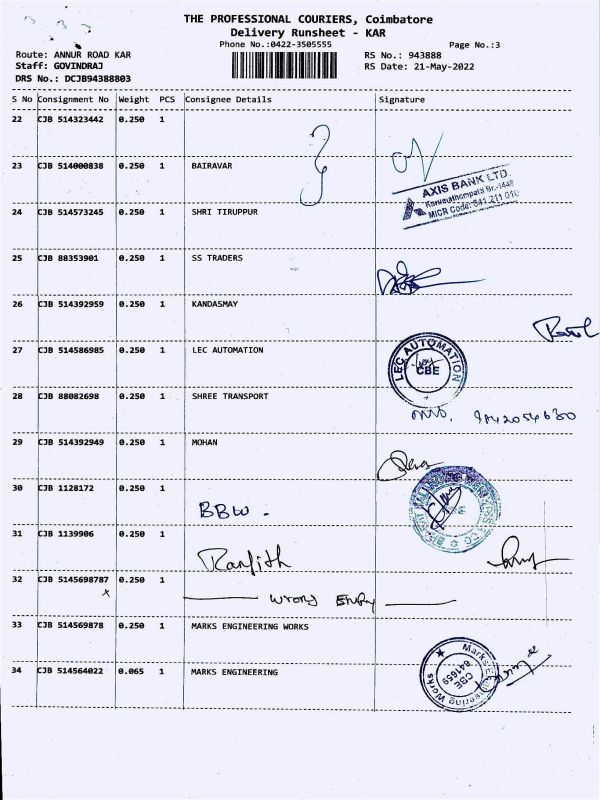 THE PROFESSIONAL COURIERS, Coimbatore
Delivery Runsheet - KAR
Phone No.:0422-3505555
Page No.:3
Route: ANNUR ROAD KAR
RS No.: 943888
Staff: GOVINDRAJ
RS Date: 21-May-2022
DRS No.: DCJB94388803
S No Consignment No Weight PCS Consignee Details Signature
22 CJB 514323442 0.250 1
23 CJB 514000838 0.250 1 BAIRAVAR
AXIS BANK LTD.
Karumathampatti Br.-1448
MICR Code: 641 211 010
24 CJB 514573245 0.250 1 SHRI TIRUPPUR
25 CJB 88353901 0.250 1 SS TRADERS
26 CJB 514392959 0.250 1 KANDASMAY
27 CJB 514586985 0.250 1 LEC AUTOMATION
LEC AUTOMATION
CBE
28 CJB 88082698 0.250 1 SHREE TRANSPORT
9842054630
29 CJB 514392949 0.250 1 MOHAN
30 CJB 1128172 0.250 1
BBW -
31 CJB 1139906 0.250 1
Ranjith
32 CJB 5145698787 0.250 1
x
Wrong Entry
33 CJB 514569878 0.250 1 MARKS ENGINEERING WORKS
34 CJB 514564022 0.065 1 MARKS ENGINEERING
Marks Engineering Works
CBE
641659